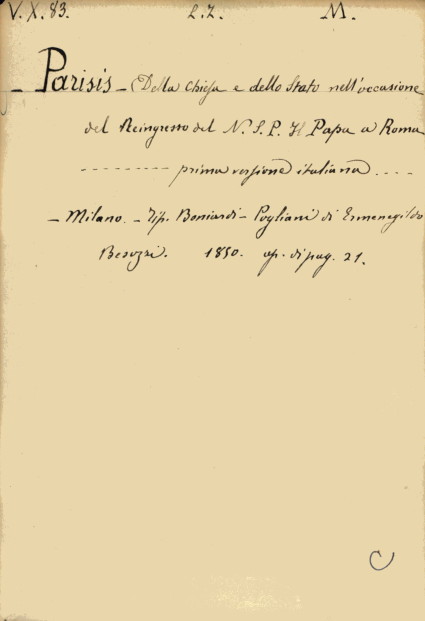 V. X. 83. L. Z. M.
Parisis - Della Chiesa e dello Stato nell'occasione
del Reingresso del N. S. P. Il Papa a Roma
--------- prima versione italiana ....
- Milano. - Tip. Boniardi - Pogliani di Ermenegildo
Besozzi. 1850. op. di pag. 21.
C